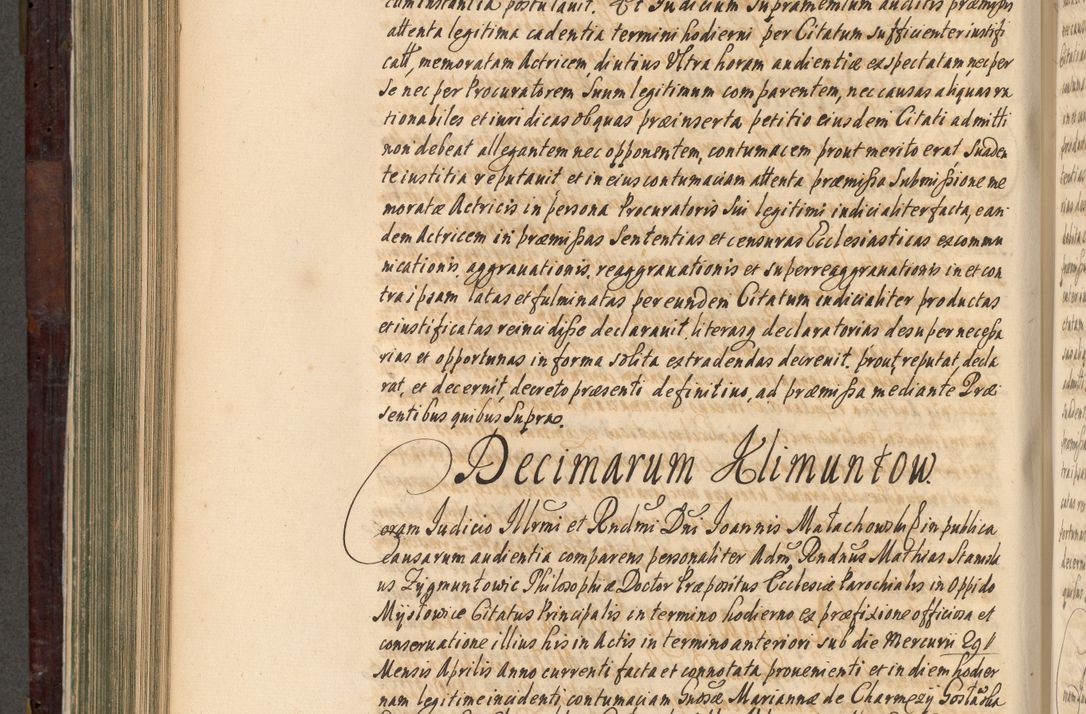 cumstantia postulauit. Et Judicium Supramemium auditis præmissis
attenta legitima cadentia termini hodierni per Citatum sufficienter iustifi
catt, memoratam Actricem, diutius Ultra horam audientiæ exspectatam, nec per
Se nec per Procuratorem Suum legitimum comparentem, nec causas aliquas ra
tionabiles et iuridicas ob quas præinserta petitio eiusdem Citati admitti
non debeat allegantem nec opponentem, contumacem prout merito erat Suaden
te iustitia reputauit et in eius contumaciam attenta præmissa Submissione me
moratæ Actricis in persona Procuratoris Sui legitimi iudicialiter facta, ean
dem Actricem in præmissas Sententias et censuras Ecclesiasticas excommu
nicationis, aggrauationis, reaggrauationis et superreaggrauationis in et con
tra ipsam latas et fulminatas per eundem Citatum iudicialiter productas
et iustificatas reincidisse declarauit, literasq declaratorias desuper necessa
rias et opportunas in forma solita extradendas decreuit. prout reputat, decla
rat, et decernit, decreto præsenti definitiuo, ad præmissa mediante Præ
sentibus quibus Supra.
Decimarum Klimuntow.
Coram Judicio Illrmi et Rndmi Dni Joannis Małachowski in publica
Causarum audientia comparens personaliter Adm Rndnus Mathias Stanisla
us Zygmuntowic Philosophiæ Doctor Præpositus Ecclesiæ Parochialis in Oppido
Mysłowice Citatus Principalis in termino hodierno ex præfixione officiosa et
conseruatione illius his in Actis in termino anteriori sub die Mercurii
Mensis Aprilis Anno currenti facta et connotata prouenienti et in diem hodier
nam legitime incidenti, contumaciam Mariannæ de